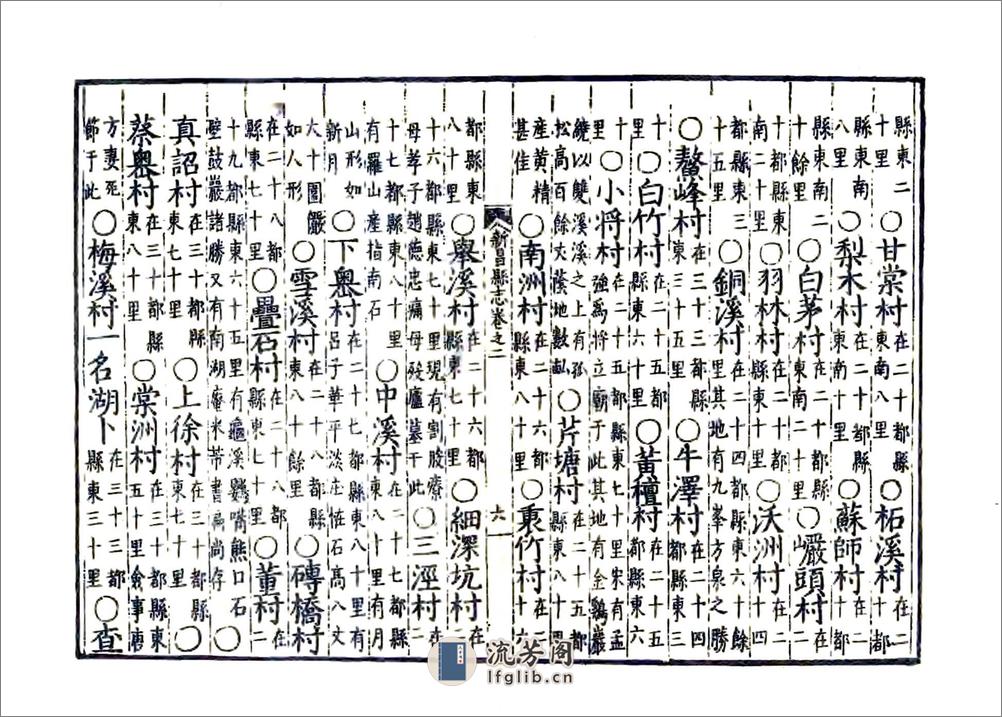 縣東二十里○甘棠村在二十都縣東南八十里○柘溪村在二十都
縣南八里○梨木村在二十都縣東南十里○蘇師村在二十都
縣東南二十餘里○白茅村在二十都縣東南二十里○巖頭村在二
十都縣東南二十里○羽林村在二十都縣東十里○沃洲村在二十四
都縣東三十五里○銅溪村在二十四都縣東六十餘里其地有九峯方泉之勝
○鰲峰村在三十三都縣東三十五里○牛澤村在二十四都縣東三
十里○白竹村在二十五都縣東六十里○黃檀村在二十五都縣東六十
里○小将村在二十五都縣東七十里宋有孟強為将立廟于此其地有金鷄巖
饒以雙溪溪之上有孤松高百餘丈蔭地數畝○芹塘村在二十五都縣東八十里
産黃精甚佳○南洲村在二十六都縣東八十里○裏竹村在二十六
新昌縣志卷之二 六
都縣東八十里○舉溪村在二十六都縣東七十里○細深坑村在二
十六都縣東七十里現有割股療母孝子趙德忠痛母歿廬墓于此○三溼村在二
十七都縣東八十里有羅山産指南石○中溪村在二十七都縣東八十里有月
山形如新月○下嶴村在二十七都縣東八十里有呂子華平淡庄怪石高八丈
大十圍儼如人形○雪溪村在二十八都縣東八十餘里○磚橋村
在二十八都縣東七十里○疊石村在二十八都縣東七十里○董村在二
十九都縣東六十五里有龜溪鸚嘴熊口石壁鼓巖諸勝又有南湖庵米芾書扁尚存○
真詔村在三十都縣東七十里○上徐村在三十都縣東七十里○
蔡嶴村在三十都縣東八十里○棠洲村在三十都縣東五十里僉事唐
方妻死節于此○梅溪村一名湖卜在三十都縣東三十里○查
流芳阁
lfglib.cn